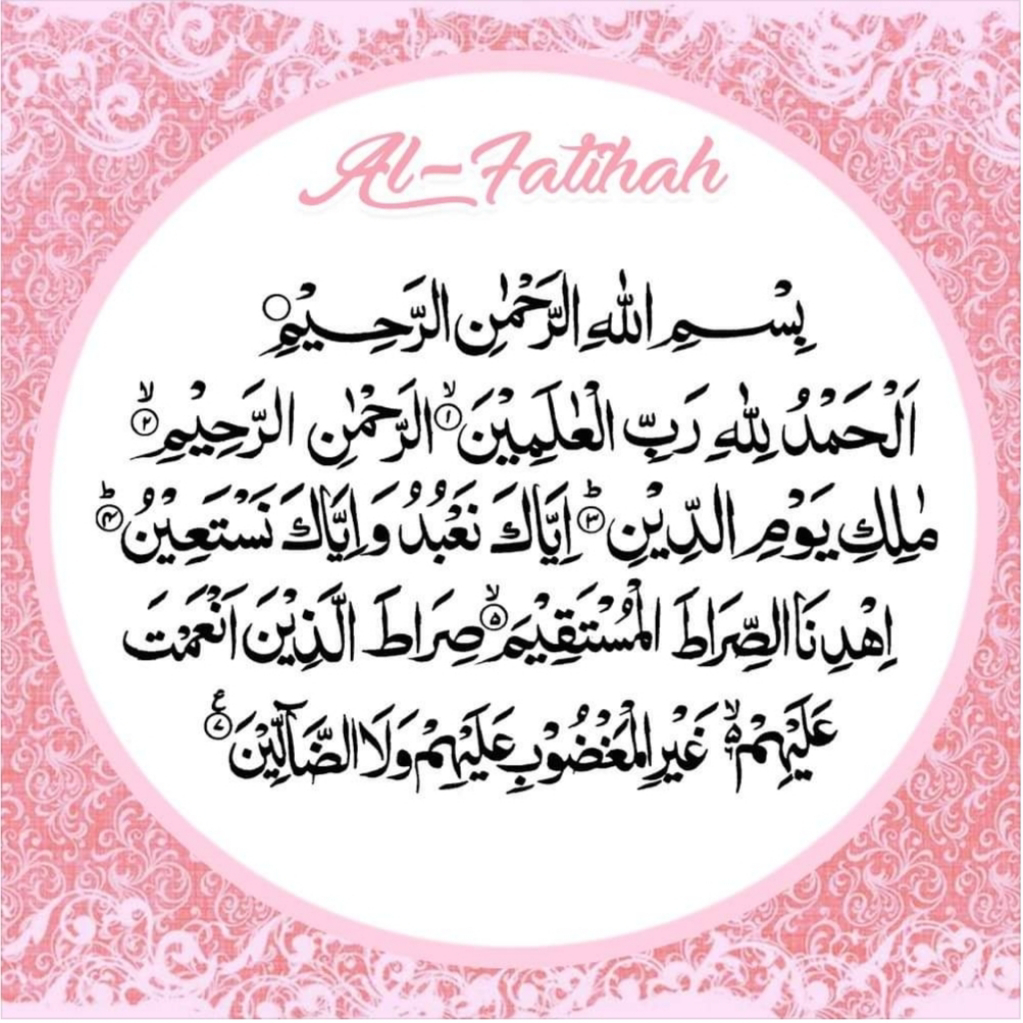 Al-Fatihah
بِسْــمِ اللهِ الرَّحْمٰنِ الرَّحِــيْمِ ○
اَلْحَمْدُ لِلّٰهِ رَبِّ الْعٰلَمِيْنَۙ ١ الرَّحْمٰنِ الرَّحِيْمِۙ ٢
مٰلِكِ يَوْمِ الدِّيْنِۗ ٣ اِيَّاكَ نَعْبُدُ وَاِيَّاكَ نَسْتَعِيْنُۗ ٤
اِهْدِنَا الصِّرَاطَ الْمُسْتَقِيْمَۙ ٥ صِرَاطَ الَّذِيْنَ اَنْعَمْتَ
عَلَيْهِمْ ەۙ غَيْرِ الْمَغْضُوْبِ عَلَيْهِمْ وَلَا الضَّاۤلِّيْنَ ࣖ ٧